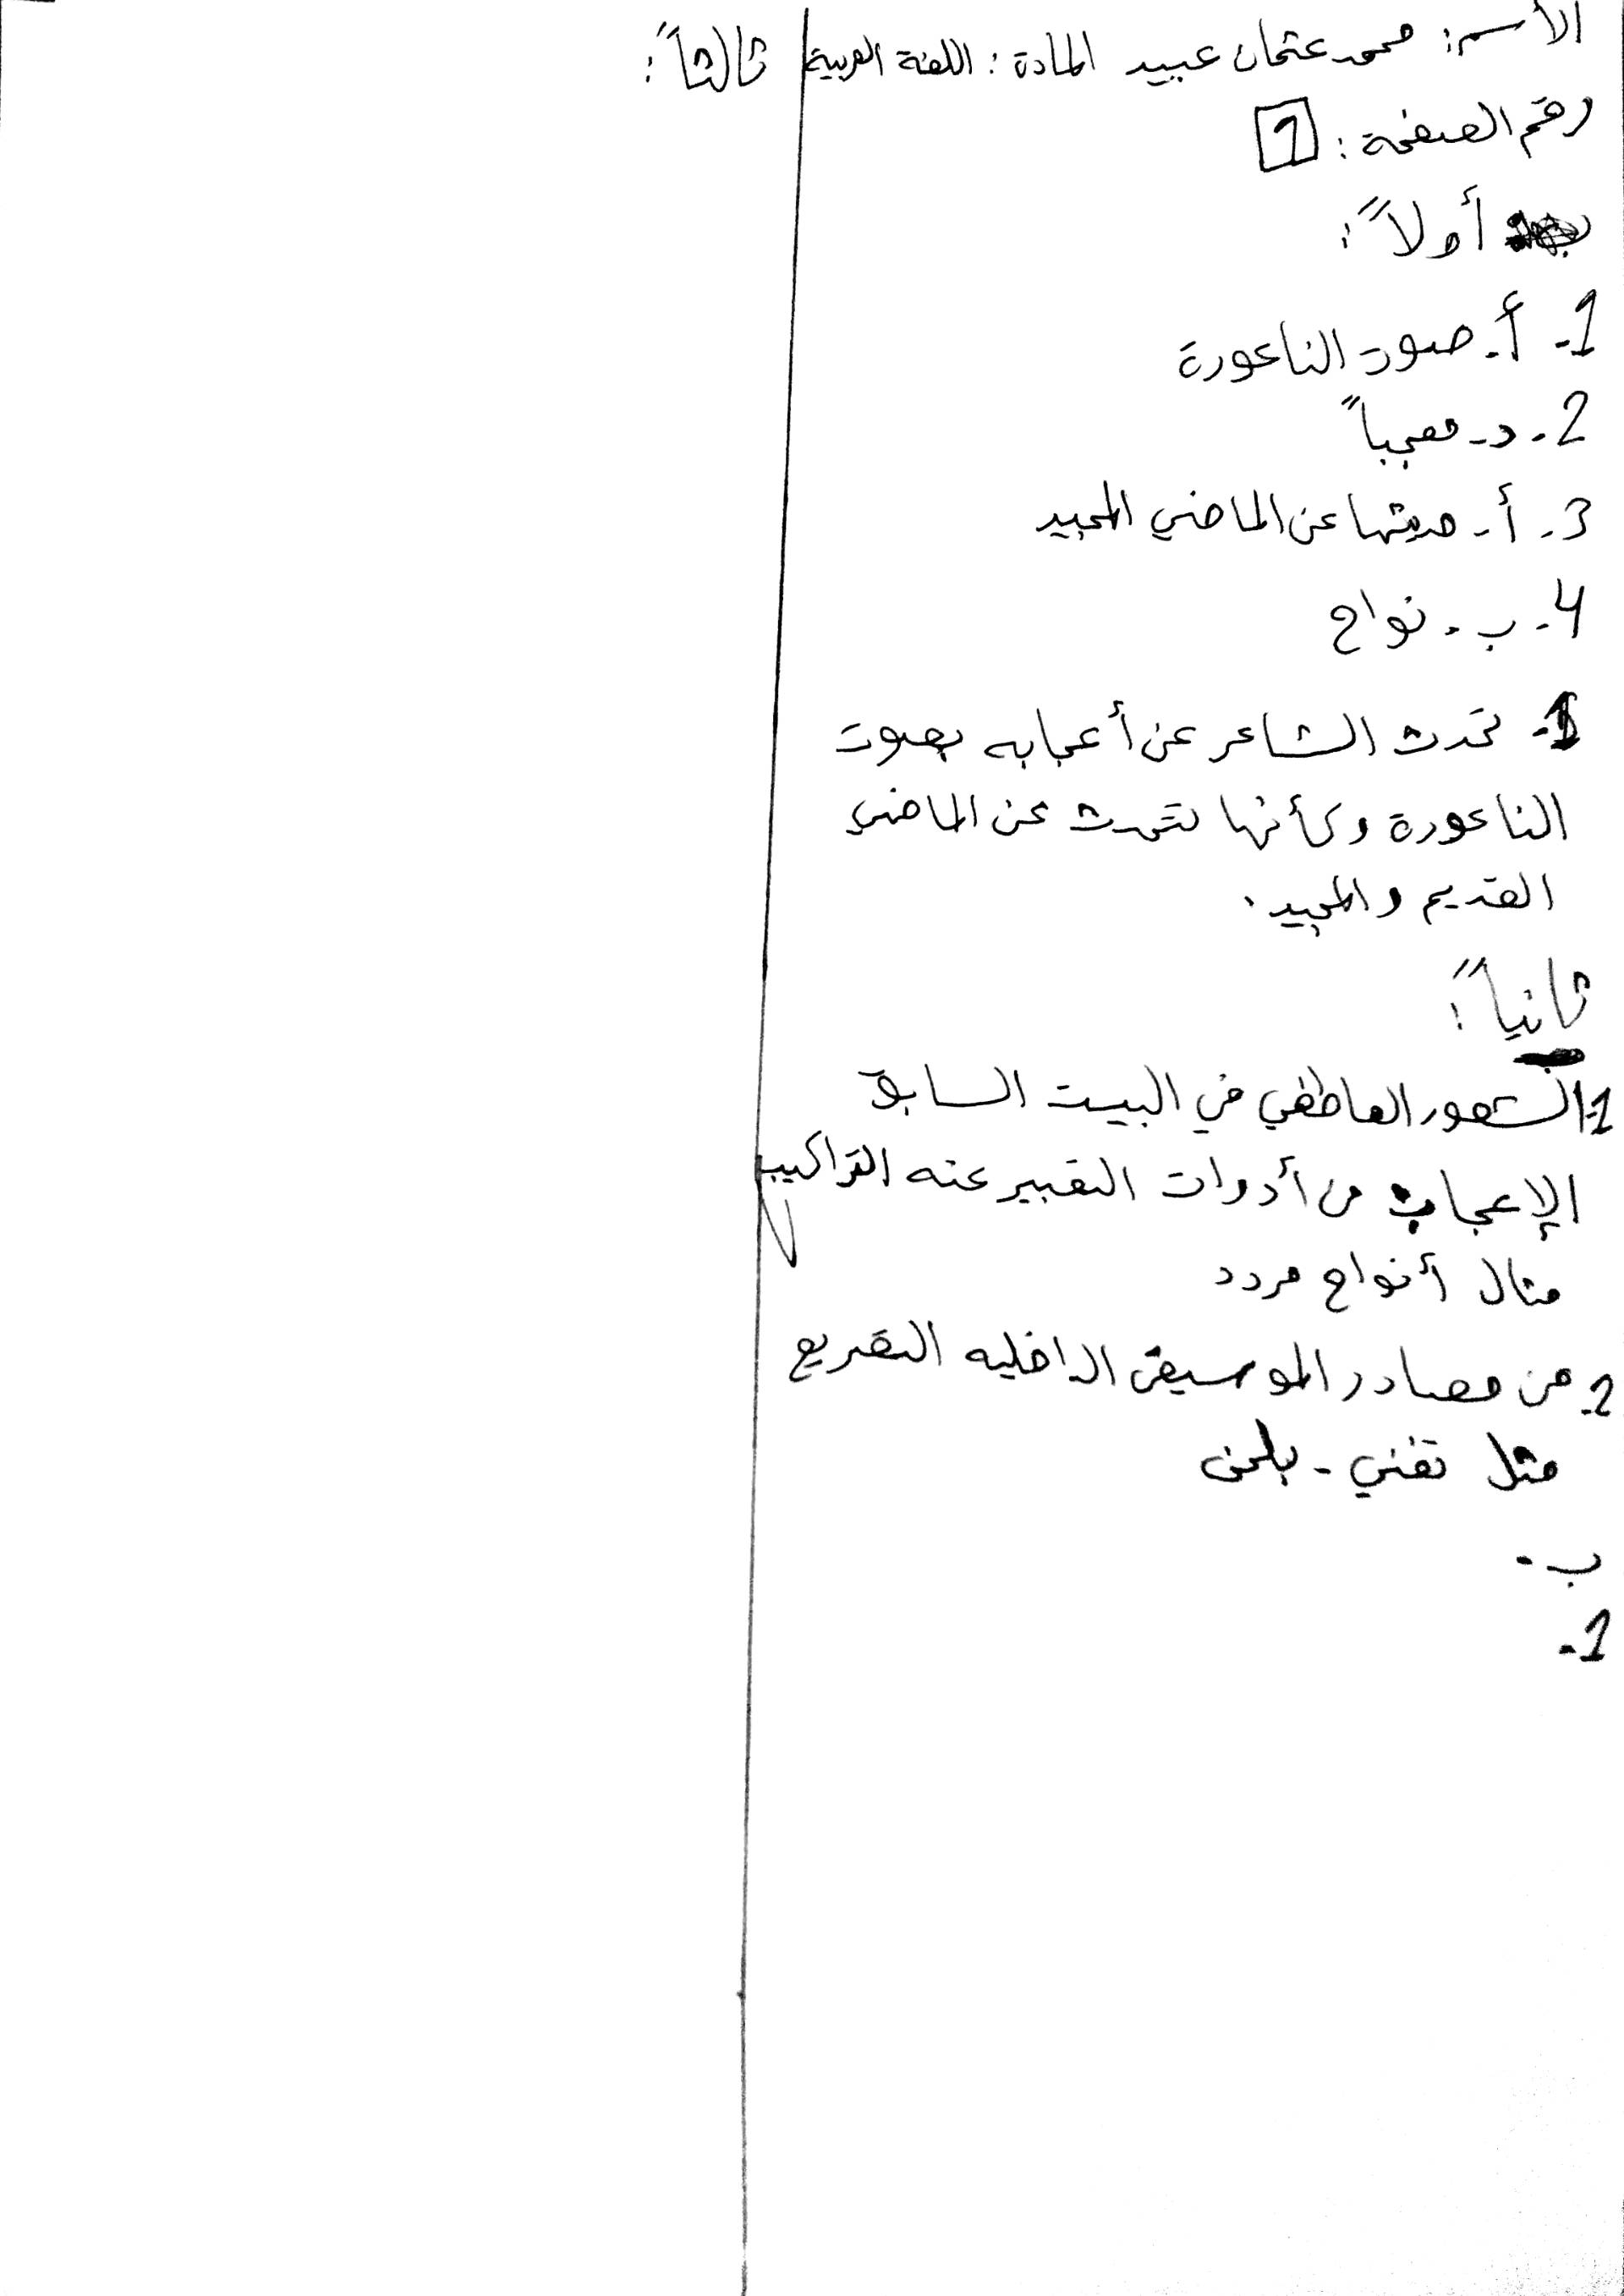 الأسم: محمد عثمان عبيد المادة: اللغة العربية
رقم الصفحة: 1
أولاً:
1- أ- صوت الناعورة
2- د- معجباً
3- أ- حديثها عن الماضي المجيد
4- ب- نواح
1- تحدث الشاعر عن أعجابه بصوت
الناعورة وكأنها تتحدث عن الماضي
القديم والمجيد.
ثانياً:
1- الشعور العاطفي في البيت السابق
الإعجاب من أدوات التعبير عنه التراكيب
مثال أنواح مردد
2- من مصادر الموسيقى الداخليه التصريع
مثل تغني - بلحن
ب-
1-
ثالثاً: